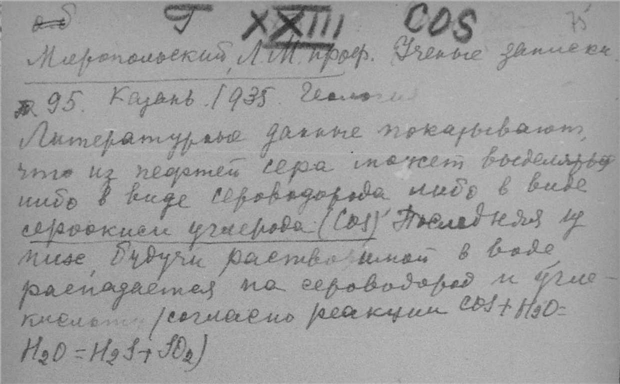 Г XXIII COS 75
Миропольский, Л.М. проф. Ученые записки.
т. 95. Казань. 1935. Геология
Литературные данные показывают,
что из нефтей сера может выделяться
либо в виде сероводорода либо в виде
сероокиси углерода (COS) Последняя из
них будучи растворимой в воде
распадается на сероводород и угле-
кислоту (согласно реакции COS + H2O =
H2O = H2S + SO2)